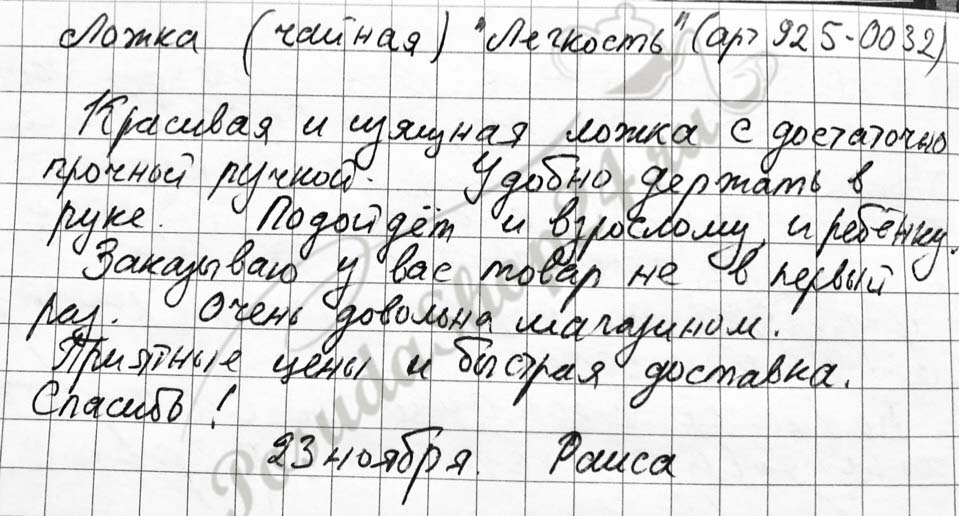 Ложка (чайная) "Легкость" (арт 925-0032)
Красивая и изящная ложка с достаточно
прочный ручкой. Удобно держать в
руке. Подойдёт и взрослому, и ребёнку.
Заказываю у вас товар не в первый
раз. Очень довольна магазином.
Приятные цены и быстрая доставка.
Спасибо!
23 ноября. Раиса